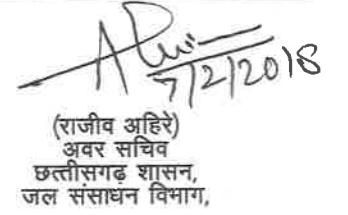 7/2/2018
(राजीव अहिरे)
अवर सचिव
छत्तीसगढ़ शासन,
जल संसाधन विभाग,